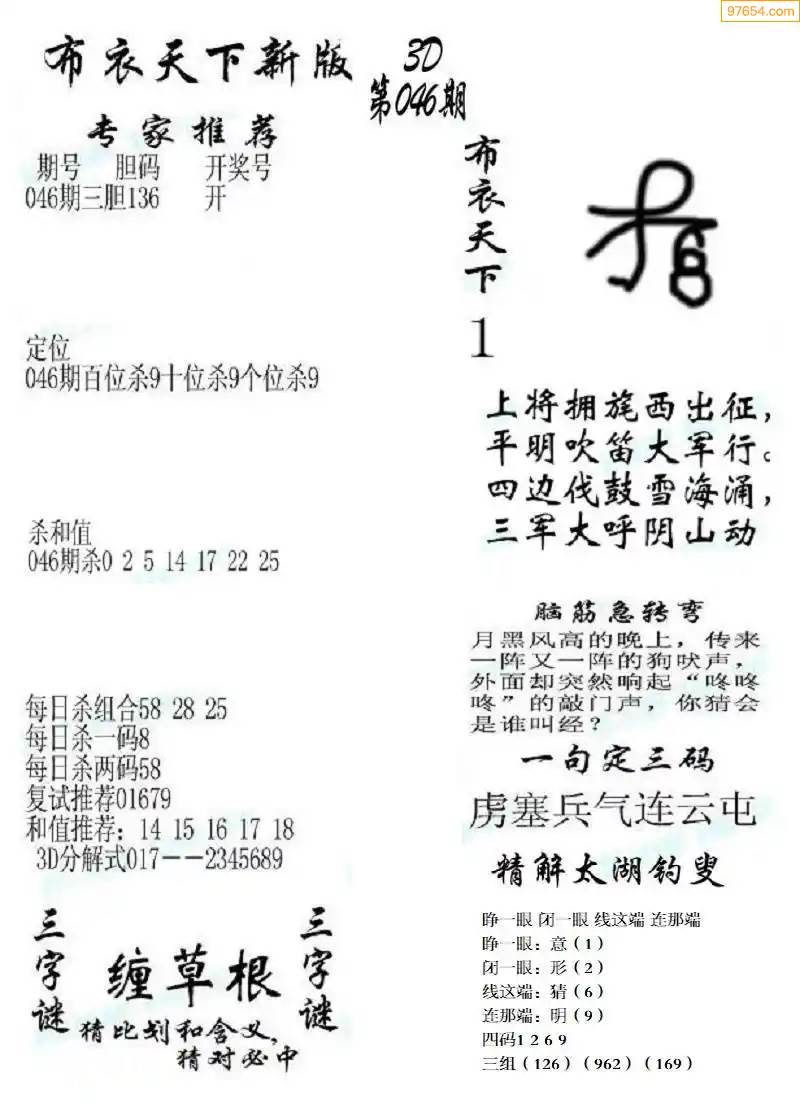 97654.com
布衣天下新版
3D
第046期
专家推荐
期号 胆码 开奖号
046期三胆136 开
定位
046期百位杀9十位杀9个位杀9
杀和值
046期杀0 2 5 14 17 22 25
每日杀组合58 28 25
每日杀一码8
每日杀两码58
复试推荐01679
和值推荐：14 15 16 17 18
3D分解式017——2345689
三字谜
缠草根
三字谜
猜比划和含义，
猜对必中
布衣天下
1
上将拥旄西出征，
平明吹笛大军行。
四边伐鼓雪海涌，
三军大呼阴山动
脑筋急转弯
月黑风高的晚上，传来
一阵又一阵的狗吠声，
外面却突然响起“咚咚
咚”的敲门声，你猜会
是谁叫经？
一句定三码
虏塞兵气连云屯
精解太湖钓叟
睁一眼 闭一眼 线这端 连那端
睁一眼：意（1）
闭一眼：形（2）
线这端：猜（6）
连那端：明（9）
四码1 2 6 9
三组（126）（962）（169）